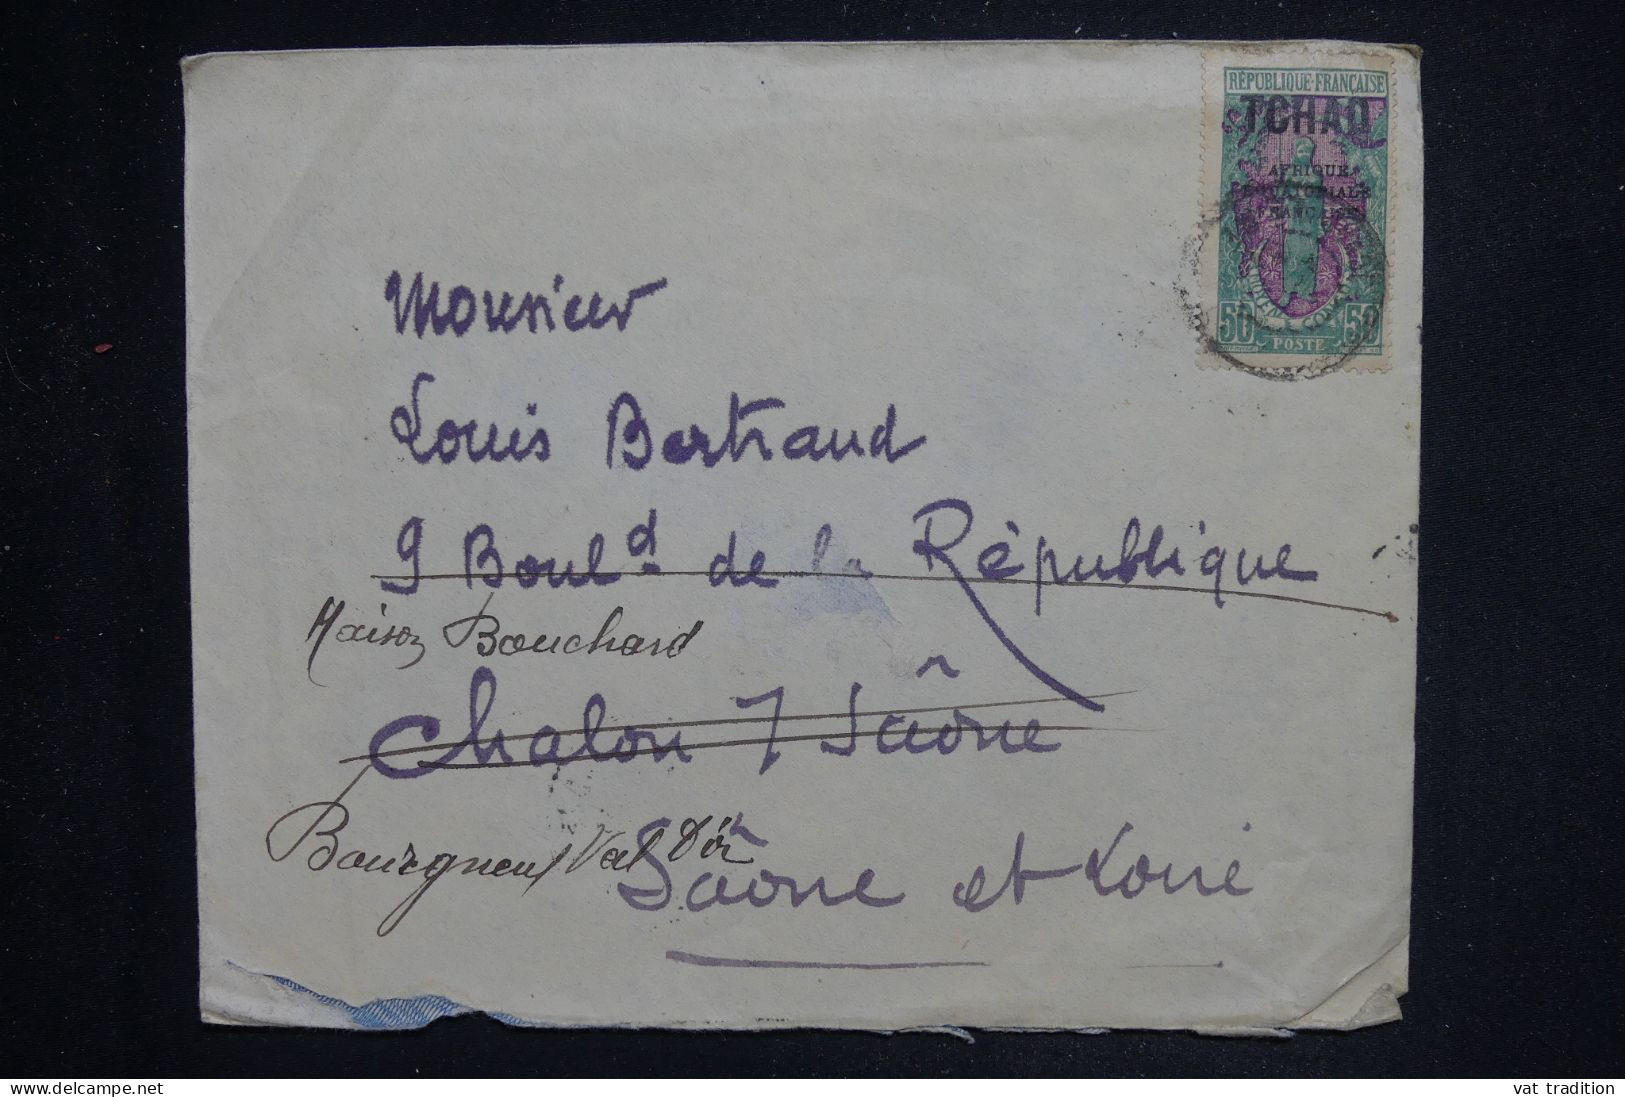 RÉPUBLIQUE FRANÇAISE
TCHAD
AFRIQUE
ÉQUATORIALE
FRANÇAISE
MOYEN CONGO
50 POSTE 50
Monsieur
Louis Bertrand
9 Boul^d de la République
Maison Bouchard
Chalon s/ Saône
Bourgneuf Val d'Or
Saône et Loire
© delcampe.net
vat tradition